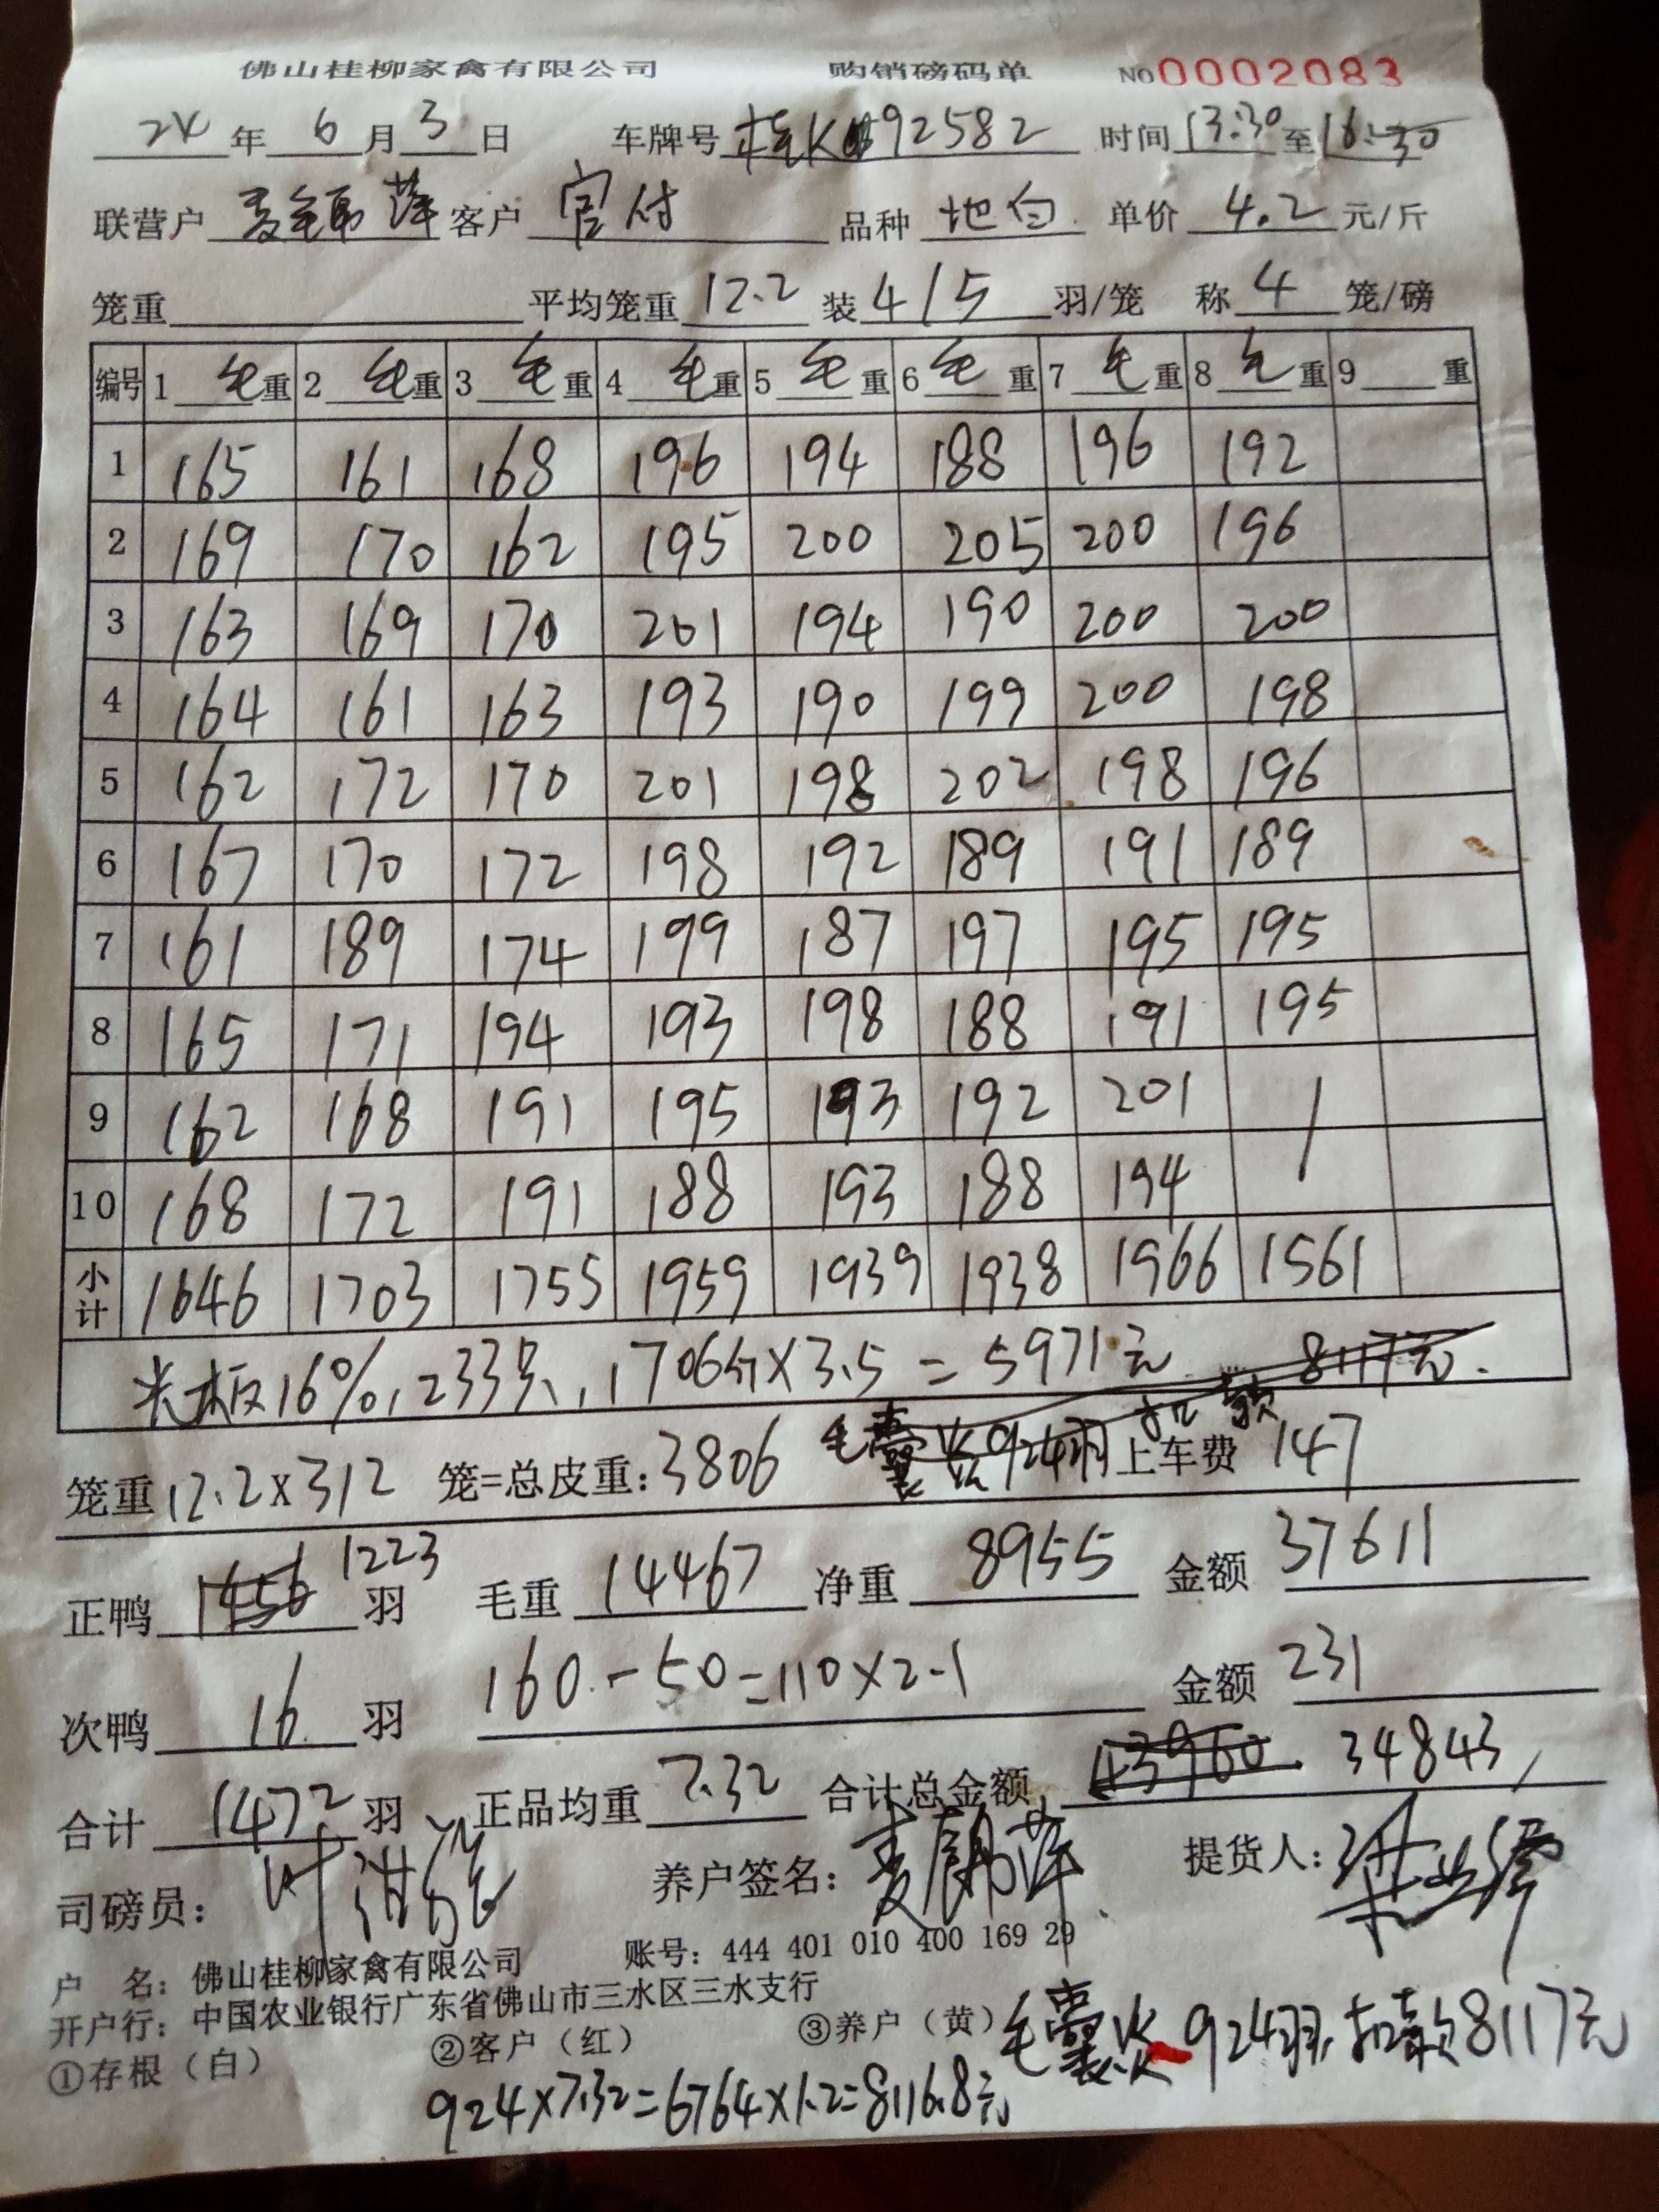 佛山桂柳家禽有限公司 购销磅码单 NO 0002083
24 年 6 月 3 日 车牌号 桂K92582 时间 13:30 至 16:30
联营户 客户 官付 品种 地白 单价 4.2 元/斤
笼重 平均笼重 12.2 装 4/5 羽/笼 称 4 笼/磅
编号 1 毛重 2 毛重 3 毛重 4 毛重 5 毛重 6 毛重 7 毛重 8 毛重 9 重
1 165 161 168 196 194 188 196 192
2 169 170 162 195 200 205 200 196
3 163 169 170 201 194 190 200 200
4 164 161 163 193 190 199 200 198
5 162 172 170 201 198 202 198 196
6 167 170 172 198 192 189 191 189
7 161 189 174 199 187 197 195 195
8 165 171 194 193 198 188 191 195
9 162 168 191 195 193 192 201 /
10 168 172 191 188 193 188 194
小计 1646 1703 1755 1959 1939 1938 1966 1561
光板16%, 233只, 1706斤×3.5=5971元 8117元.
笼重 12.2×312 笼=总皮重: 3806 毛囊炎924羽 扣款 上车费 147
正鸭 1456 1223 羽 毛重 14467 净重 8955 金额 37611
次鸭 16 羽 160-50=110×2.1 金额 231
合计 1472 羽 正品均重 7.32 合计总金额 43960 34843
司磅员: 养户签名: 提货人:
户 名: 佛山桂柳家禽有限公司 账号: 444 401 010 400 169 29
开户行: 中国农业银行广东省佛山市三水区三水支行
①存根（白） ②客户（红） ③养户（黄） 毛囊炎924羽扣款8117元
924×7.32=6764×1.2=8116.8元